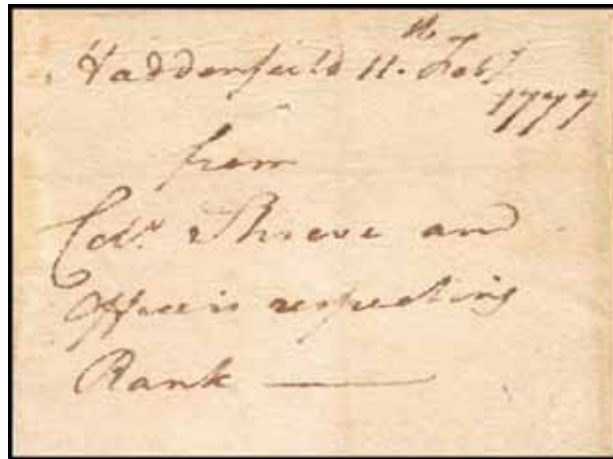 Haddenfield 11.th Feby
1777
from
Colo. Shreve and
Officers respecting
Rank